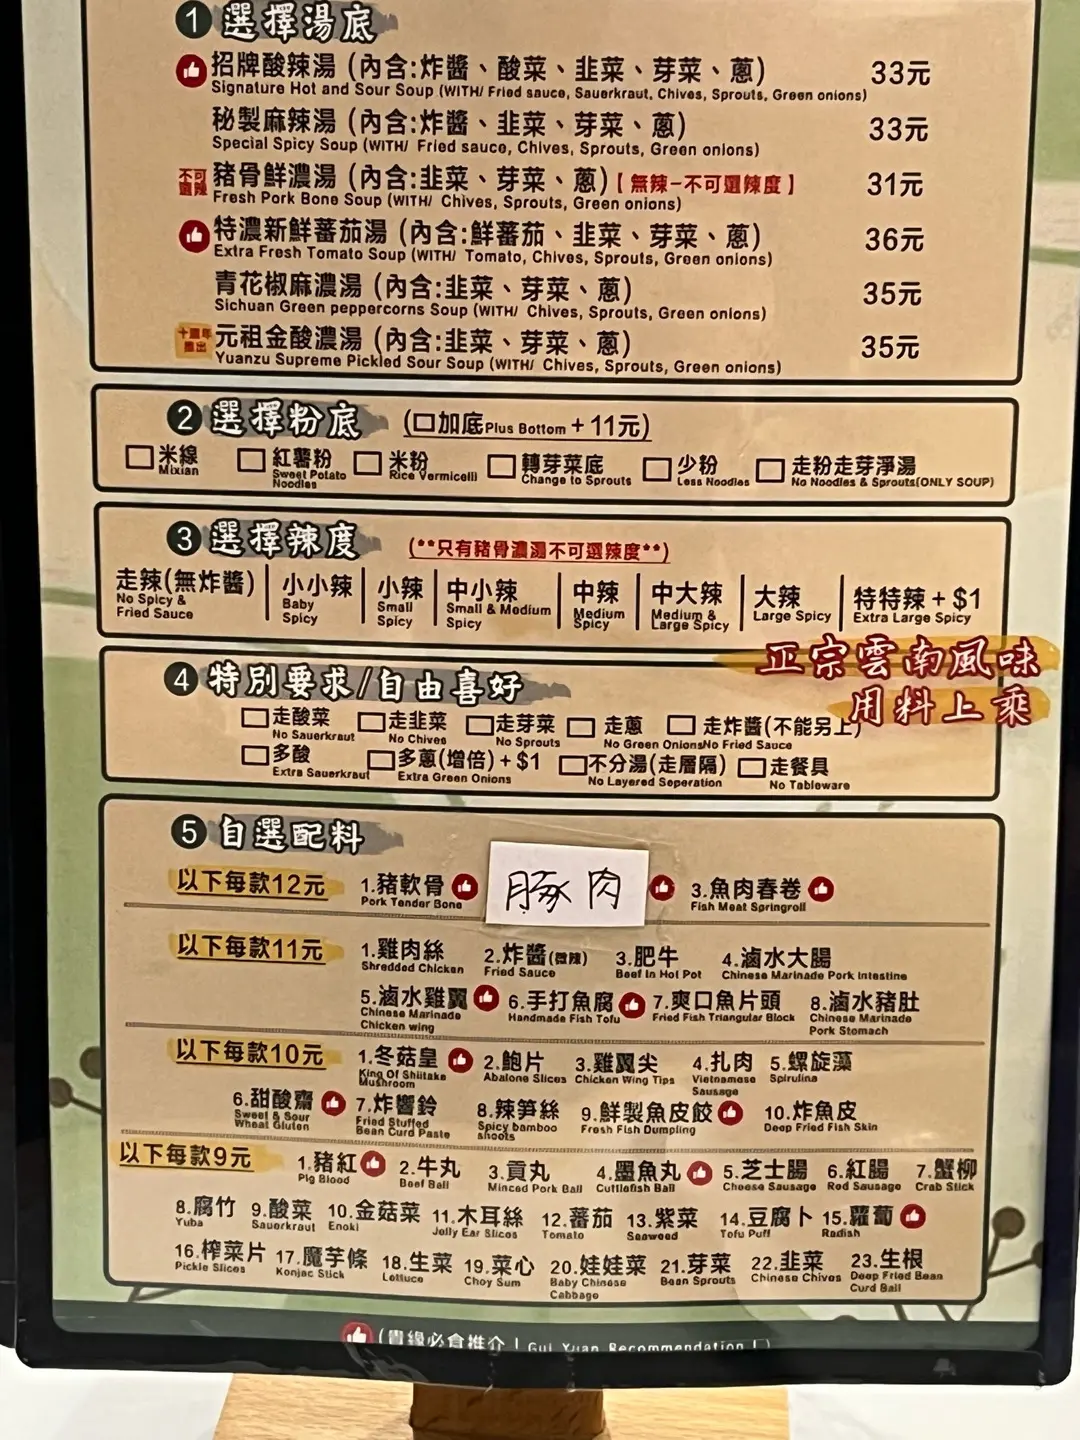 1 選擇湯底
招牌酸辣湯 (內含:炸醬、酸菜、韭菜、芽菜、蔥) 33元
Signature Hot and Sour Soup (WITH/ Fried sauce, Sauerkraut, Chives, Sprouts, Green onions)
秘製麻辣湯 (內含:炸醬、韭菜、芽菜、蔥) 33元
Special Spicy Soup (WITH/ Fried sauce, Chives, Sprouts, Green onions)
不可選辣 豬骨鮮濃湯 (內含:韭菜、芽菜、蔥)【無辣-不可選辣度】 31元
Fresh Pork Bone Soup (WITH/ Chives, Sprouts, Green onions)
特濃新鮮蕃茄湯 (內含:鮮蕃茄、韭菜、芽菜、蔥) 36元
Extra Fresh Tomato Soup (WITH/ Tomato, Chives, Sprouts, Green onions)
青花椒麻濃湯 (內含:韭菜、芽菜、蔥) 35元
Sichuan Green peppercorns Soup (WITH/ Chives, Sprouts, Green onions)
十周年推出 元祖金酸濃湯 (內含:韭菜、芽菜、蔥) 35元
Yuanzu Supreme Pickled Sour Soup (WITH/ Chives, Sprouts, Green onions)
2 選擇粉底 (□加底Plus Bottom + 11元)
米線 紅薯粉 米粉 轉芽菜底 少粉 走粉走芽淨湯
Mixian Sweet Potato Noodles Rice Vermicelli Change to Sprouts Less Noodles No Noodles & Sprouts(ONLY SOUP)
3 選擇辣度 (**只有豬骨濃湯不可選辣度**)
走辣(無炸醬) 小小辣 小辣 中小辣 中辣 中大辣 大辣 特特辣 + $1
No Spicy & Fried Sauce Baby Spicy Small Spicy Small & Medium Spicy Medium Spicy Medium & Large Spicy Large Spicy Extra Large Spicy
正宗雲南風味
用料上乘
4 特別要求/自由喜好
走酸菜 走韭菜 走芽菜 走蔥 走炸醬(不能另上)
No Sauerkraut No Chives No Sprouts No Green Onions No Fried Sauce
多酸 多蔥(增倍) + $1 不分湯(走層隔) 走餐具
Extra Sauerkraut Extra Green Onions No Layered Seperation No Tableware
5 自選配料
以下每款12元 1.豬軟骨 豚肉 3.魚肉春卷
Pork Tender Bone Fish Meat Springroll
以下每款11元 1.雞肉絲 2.炸醬(微辣) 3.肥牛 4.滷水大腸
Shredded Chicken Fried Sauce Beef In Hot Pot Chinese Marinade Pork Intestine
5.滷水雞翼 6.手打魚腐 7.爽口魚片頭 8.滷水豬肚
Chinese Marinade Chicken wing Handmade Fish Tofu Fried Fish Triangular Block Chinese Marinade Pork Stomach
以下每款10元 1.冬菇皇 2.鮑片 3.雞翼尖 4.扎肉 5.螺旋藻
King Of Shiitake Mushroom Abalone Slices Chicken Wing Tips Vietnamese Sausage Spirulina
6.甜酸齋 7.炸響鈴 8.辣筍絲 9.鮮製魚皮餃 10.炸魚皮
Sweet & Sour Wheat Gluten Fried Stuffed Bean Curd Paste Spicy bamboo shoots Fresh Fish Dumpling Deep Fried Fish Skin
以下每款9元 1.豬紅 2.牛丸 3.貢丸 4.墨魚丸 5.芝士腸 6.紅腸 7.蟹柳
Pig Blood Beef Ball Minced Pork Ball Cuttlefish Ball Cheese Sausage Red Sausage Crab Stick
8.腐竹 9.酸菜 10.金菇菜 11.木耳絲 12.蕃茄 13.紫菜 14.豆腐卜 15.蘿蔔
Yuba Sauerkraut Enoki Jelly Ear Slices Tomato Seaweed Tofu Puff Radish
16.榨菜片 17.魔芋條 18.生菜 19.菜心 20.娃娃菜 21.芽菜 22.韭菜 23.生根
Pickle Slices Konjac Stick Lettuce Choy Sum Baby Chinese Cabbage Bean Sprouts Chinese Chives Deep Fried Bean Curd Ball
(貴緣必食推介 ! Gui Yuan Recommendation !)